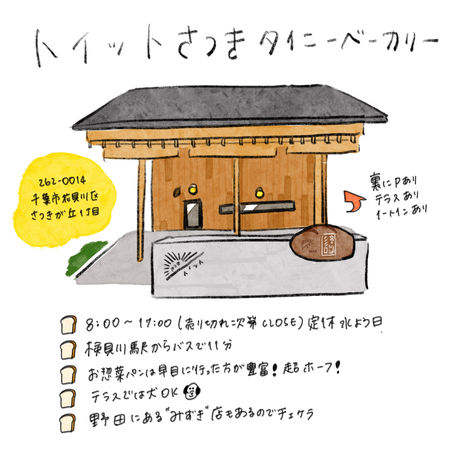 トイットさつきタイニーベーカリー
262-0014
千葉市花見川区
さつきが丘1丁目
裏にPあり
テラスあり
イートインあり
トイット
8:00～17:00(売り切れ次第CLOSE)定休 水よう日
検見川駅からバスで11分
お惣菜パンは早目に行った方が豊富!超ホーフ!
テラスでは犬OK
野田にある"みずき"店もあるのでチェケラ